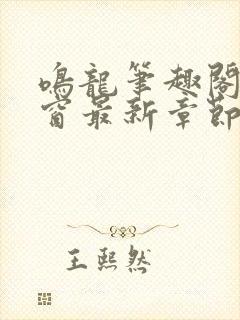 鸣龍筆趣閣
窗最新章節
王熙然